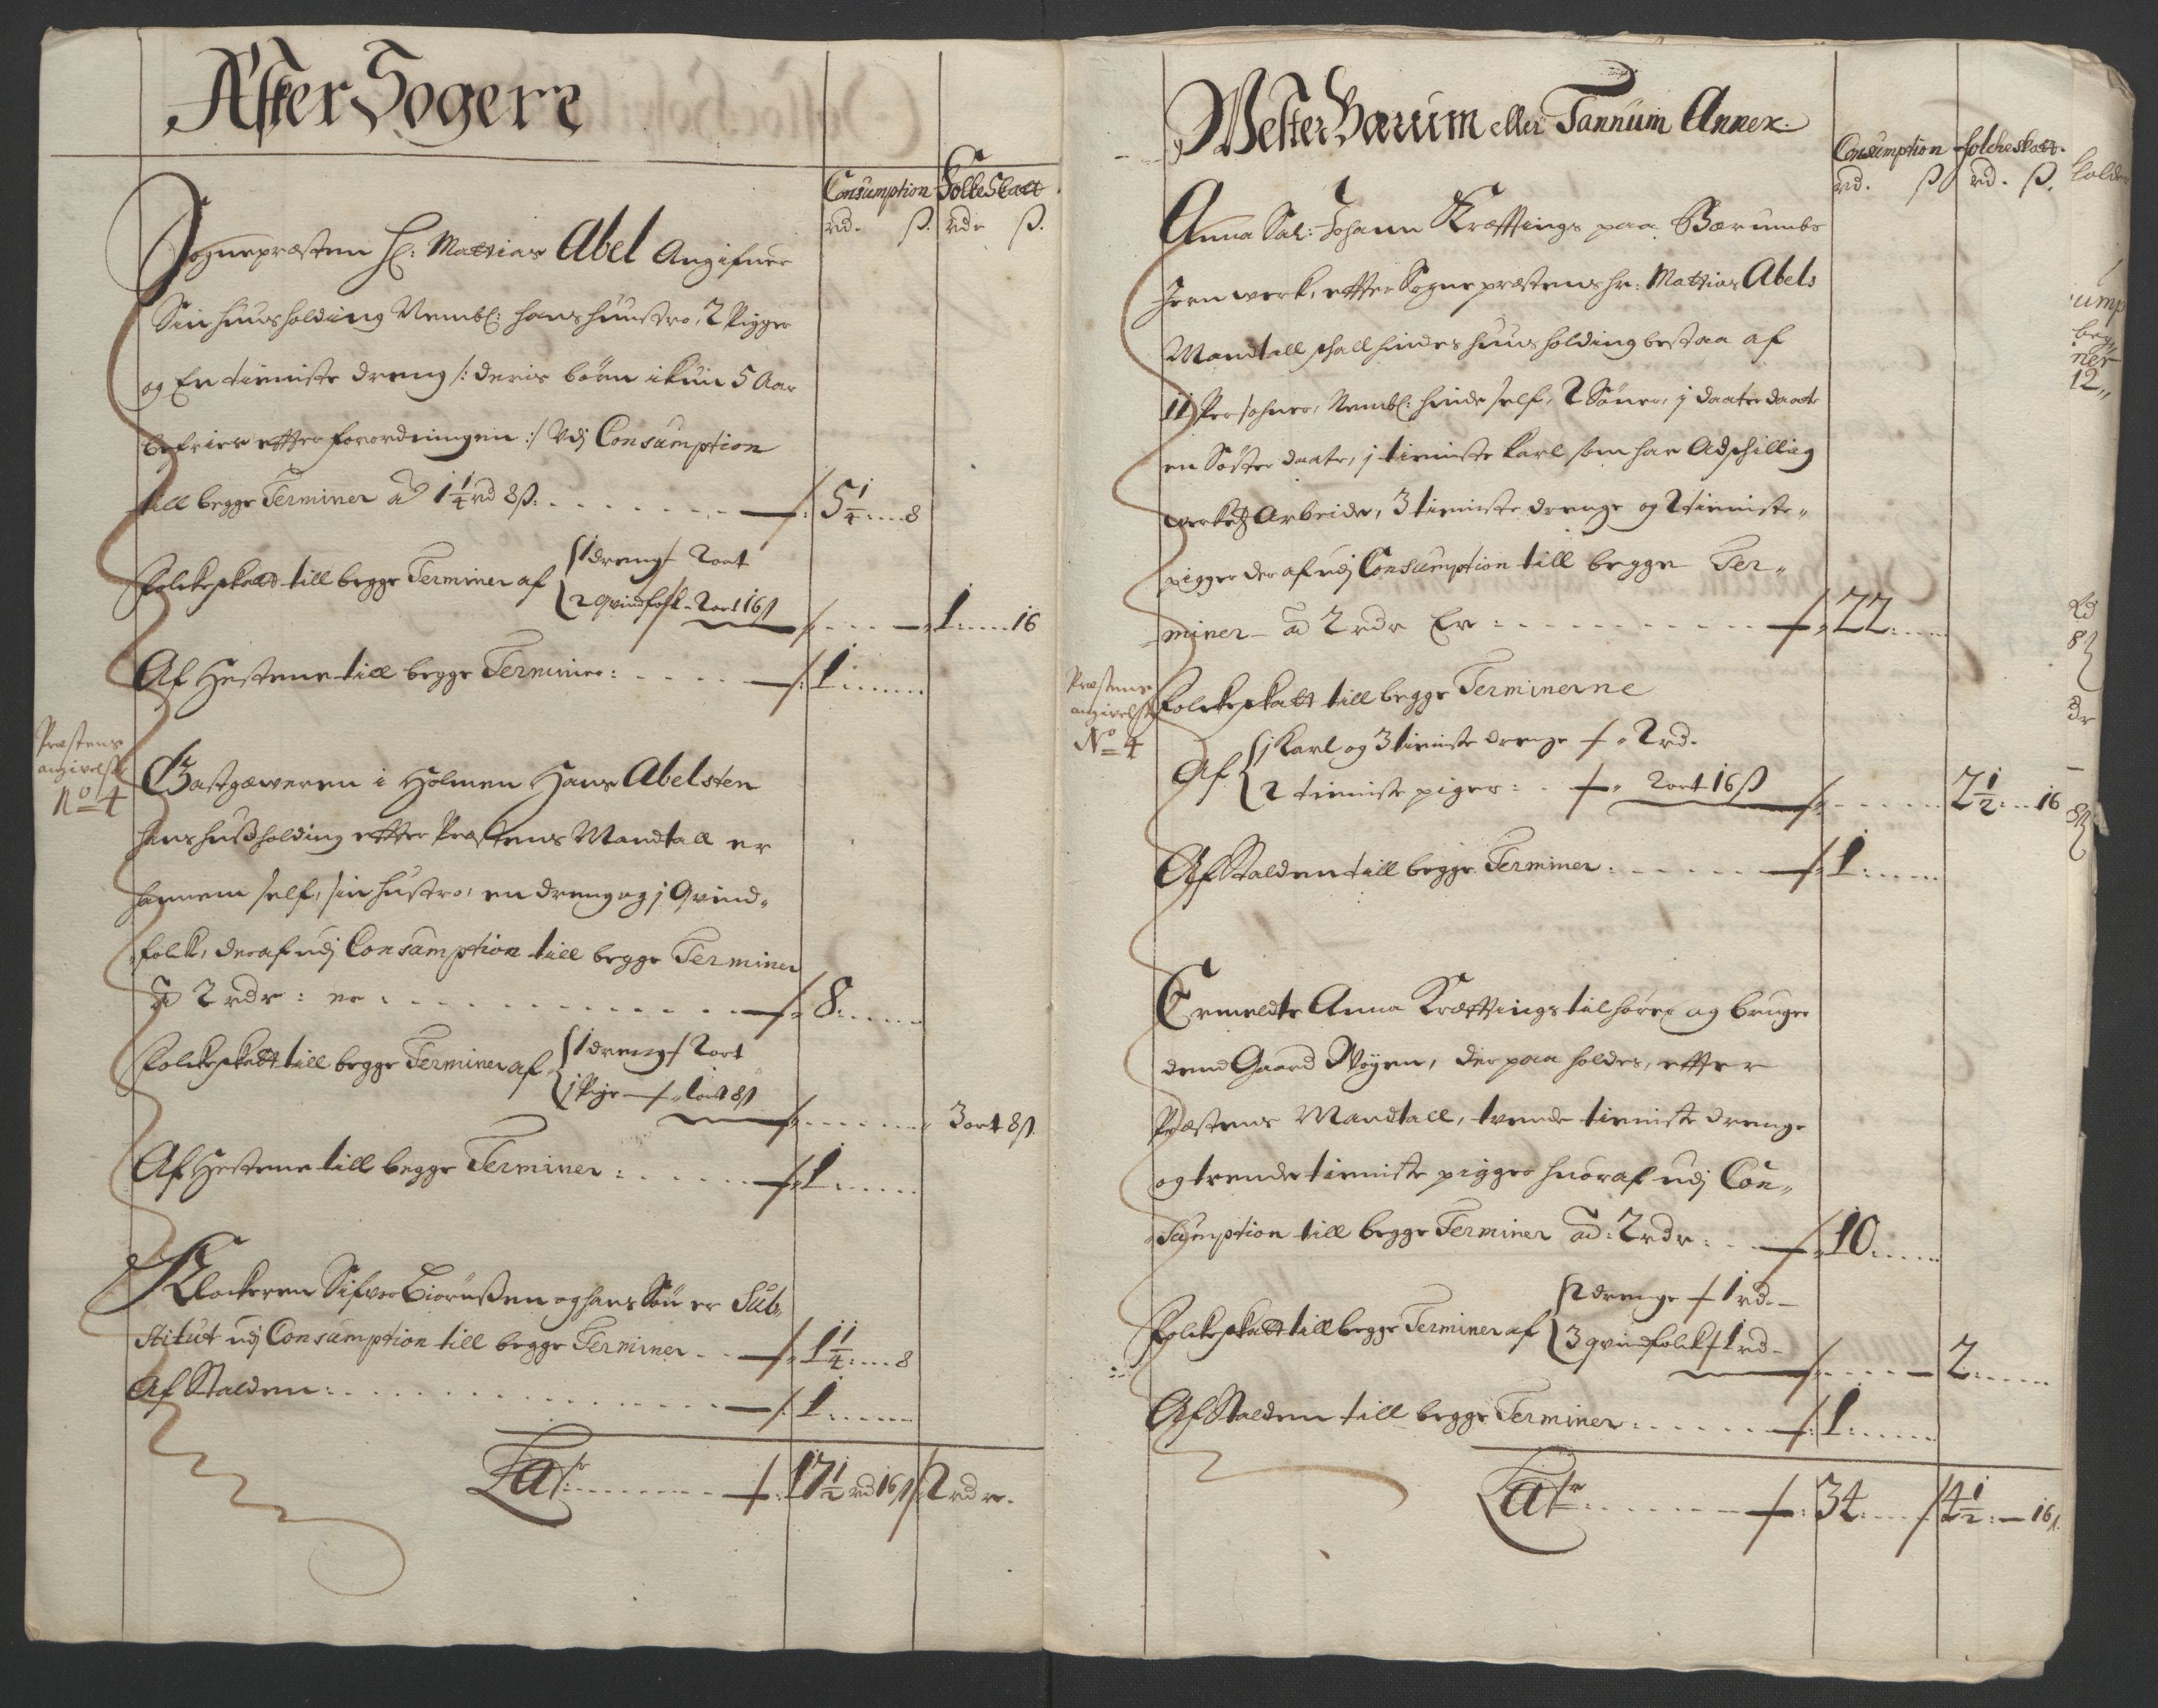 Asker Sogere
Consumption Folke Skatt
rd. ß. rdr ß.
Sognepræsten Hr: Mattias Abel Angifuer
Sin huusholding Nembl: hans huustro, 2 Pigger
og En tieniste dreng /: deris børn ikun 5 Aar
befries effter forordningen :/ Udj Consumption
till begge Terminer ad 1 1/4 rd 8ß: 5 1/4 8
Folkeskatt till begge Terminer af 1 dreng 2 ort
2 qvindfolk - 2 ort 16ß 1 16
Af Hestene till begge Terminer: 1
Præstens
angivelse
No 4
Gastgæweren i Holmen Hans Abelsten
hans hußholding effter Præstens Mandtall er
hannem self, sin hustro, en dreng og j Qvind-
folk, deraf udj Consumption till begge Terminer
ad 2 rdr: er 8
Folkeskatt till begge Terminer af 1 dreng 2 ort
j Pige 1 ort 8ß 3 ort 8ß
Af Hestene till begge Terminer: 1
Klockeren Sifver Biørnßen og hans Søn er Sub-
stitut udj Consumption till begge Terminer 1 1/4 8
Af Stalden: 1
Latr 17 1/2 rd 16ß 2 rdr.
Wester Bærum eller Tannum Annex.
Consumption folcheskatt.
rd. ß rd. ß.
Anna Sal: Johann Kræfftings paa Bærumbs
Jernwerk, effter Sognepræstens hr: Mattias Abels
Mandtall skall hindes huusholding bestaa af
11 Persohner, Nembl: hinde self, 2 Sønner, j daater daater
en Søster daater, j tieniste karl som har Adschillig
werketz Arbeider, 3 tieniste drenge og 2 tieniste-
pigger der af udj Consumption till begge Ter-
miner ad 2 rdr Er: 22
Præstens
angivelse
No 4
Folkeskatt till begge Terminerne
Af j Karl og 3 tieniste drenge 2 rd.
2 tieniste piger: 2 ort 16ß 2 1/2 16
Af Stalden till begge Terminer: 1
Ermeldte Anna Kræfftings tilhører og bruger
dend Gaard Wøyen, der paa holdes, effter
Præstens Mandtall, tvende tieniste drenge
og trende tieniste pigger huoraf udj Con-
sumption till begge Terminer ad: 2 rdr: 10
Folkeskatt till begge Terminer af 2 drenge 1 rd
3 qvindfolk 1 rd 2
Af Stalden till begge Terminer: 1
Latr 34 4 1/2 16